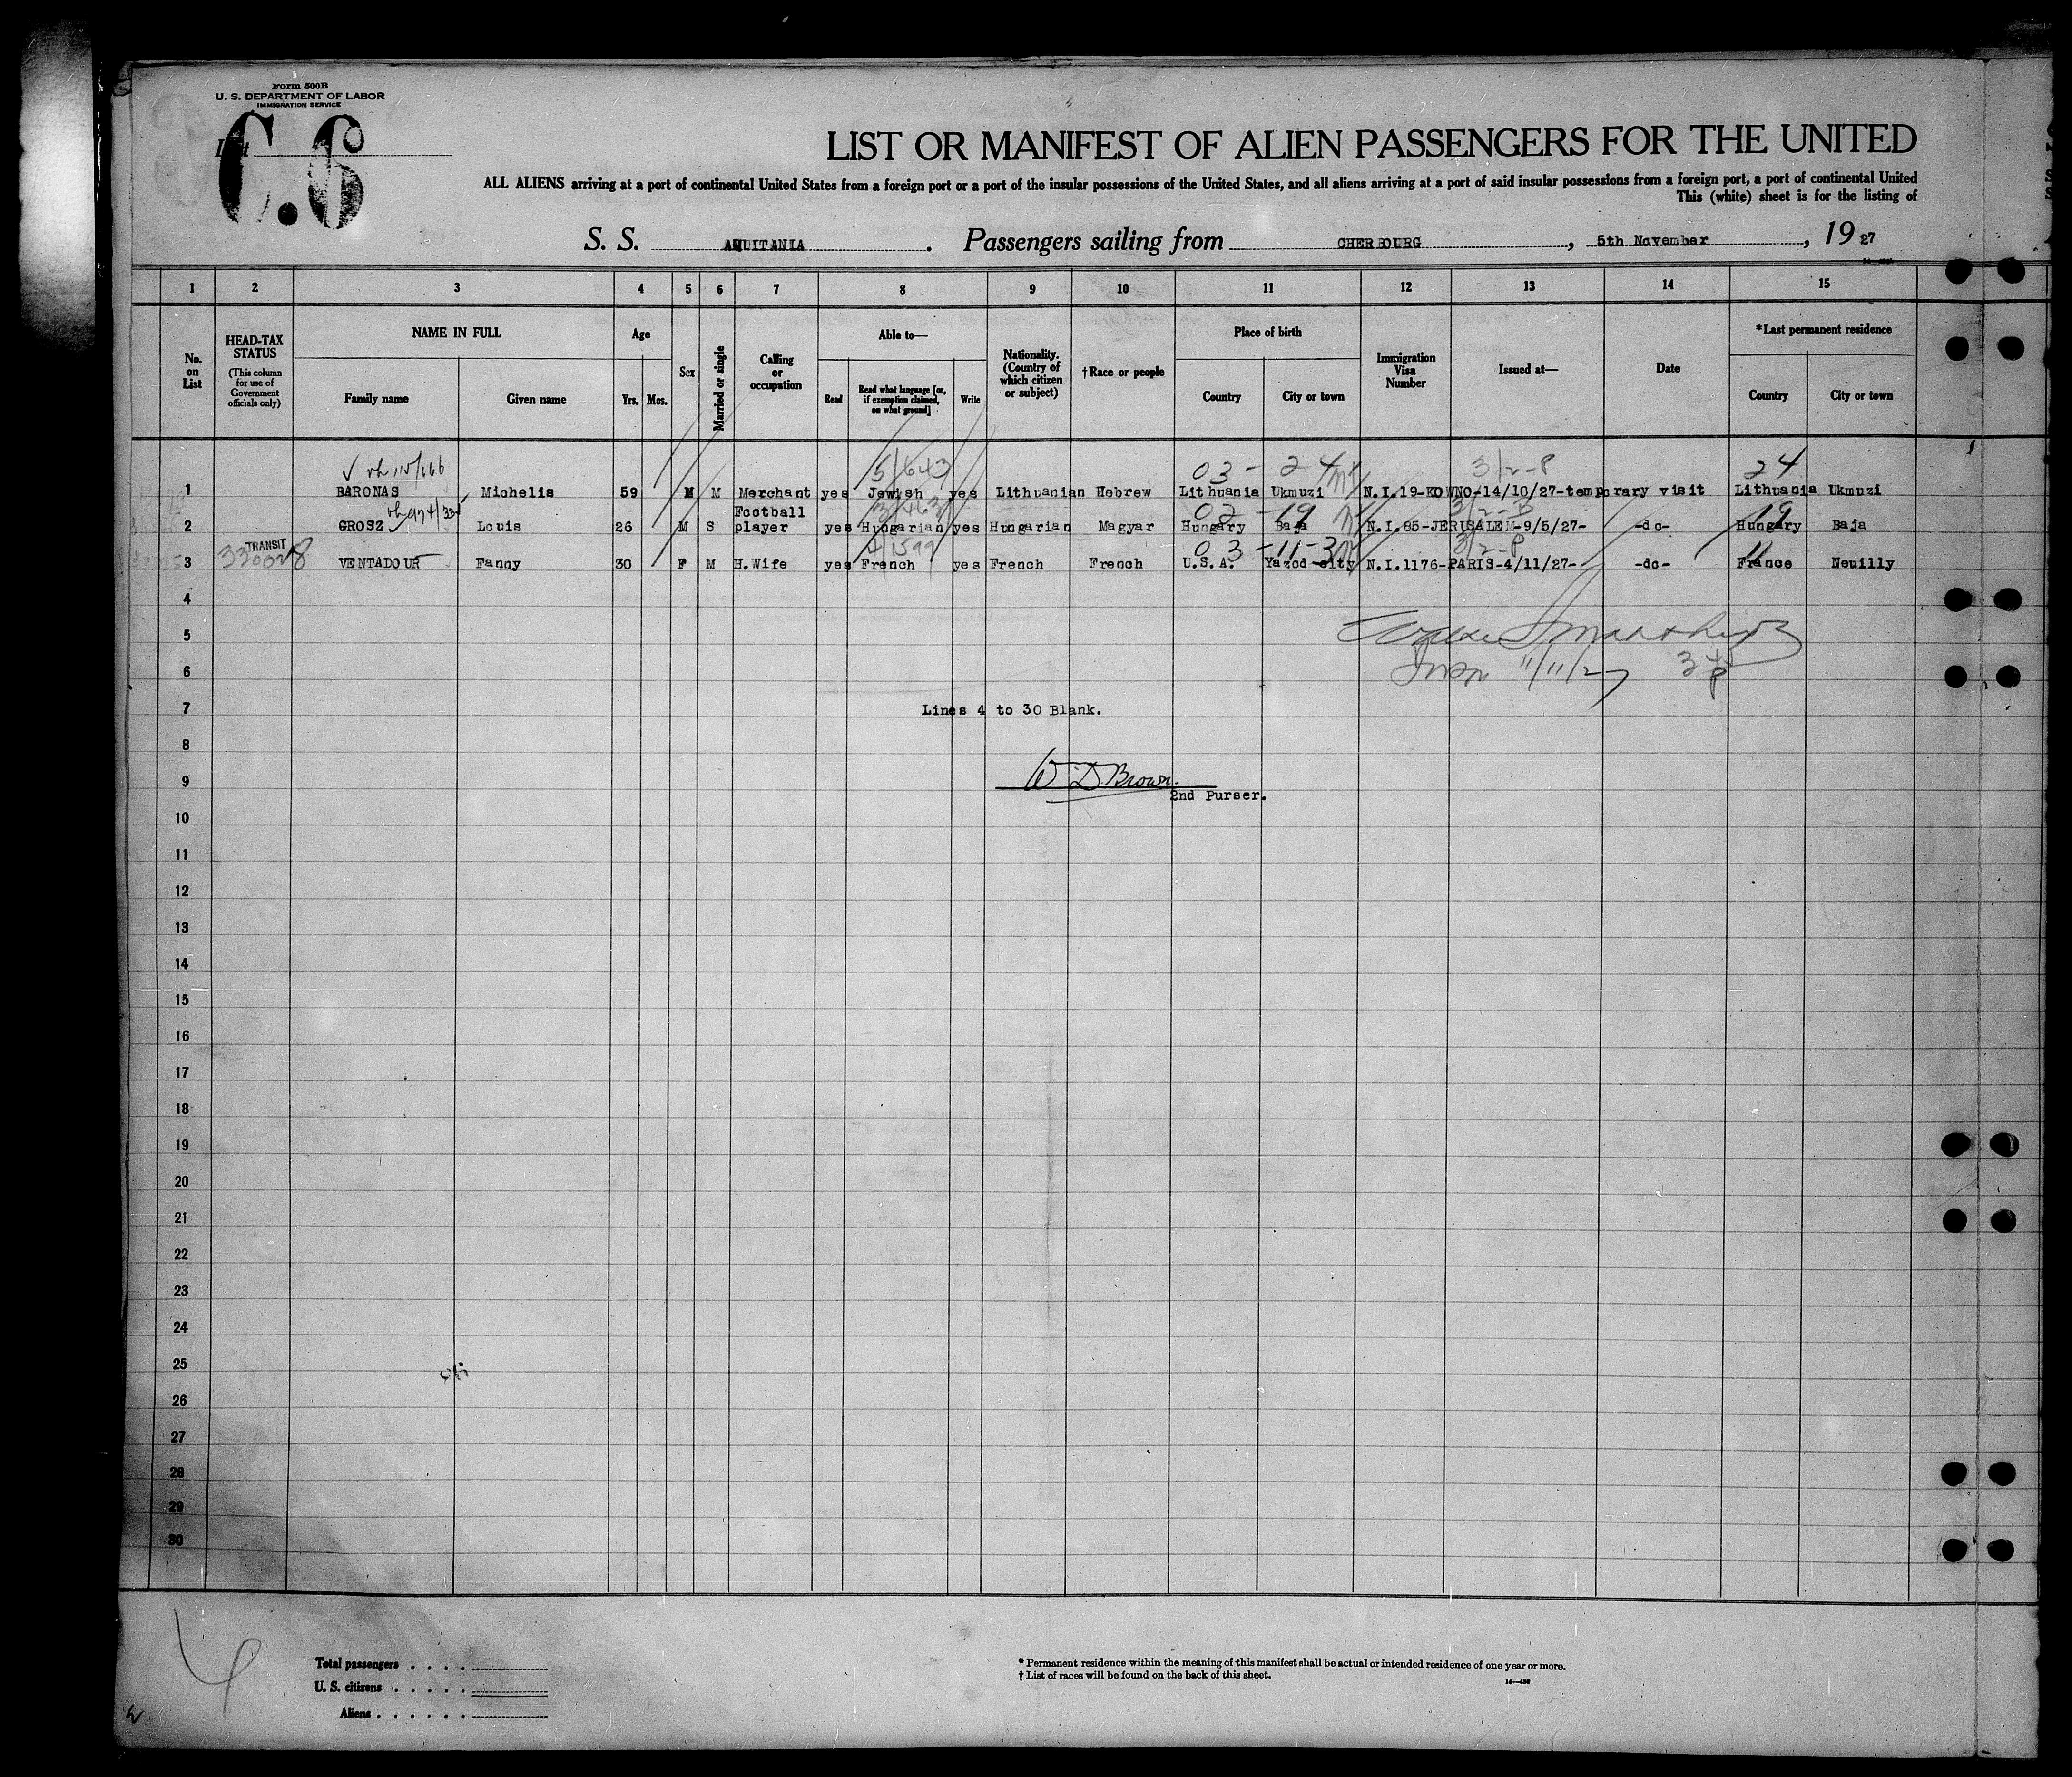 Form 500B
U. S. DEPARTMENT OF LABOR
IMMIGRATION SERVICE
List
C.6
LIST OR MANIFEST OF ALIEN PASSENGERS FOR THE UNITED
ALL ALIENS arriving at a port of continental United States from a foreign port or a port of the insular possessions of the United States, and all aliens arriving at a port of said insular possessions from a foreign port, a port of continental United
This (white) sheet is for the listing of
S. S. AQUITANIA. Passengers sailing from CHERBOURG, 5th November, 1927
1 2 3 4 5 6 7 8 9 10 11 12 13 14 15
No. on List
HEAD-TAX STATUS
(This column for use of Government officials only)
NAME IN FULL
Family name
Given name
Age
Yrs. Mos.
Sex
Married or single
Calling or occupation
Able to—
Read
Read what language [or, if exemption claimed, on what ground]
Write
Nationality. (Country of which citizen or subject)
†Race or people
Place of birth
Country
City or town
Immigration Visa Number
Issued at—
Date
*Last permanent residence
Country
City or town
5/643
03 - 24
3/2-P
24
1 BARONAS Michelis 59 M M Merchant yes Jewish yes Lithuanian Hebrew Lithuania Ukmuzi N.I.19-KOWNO-14/10/27-temporary visit Lithuania Ukmuzi
02 - 19
19
2 GROSZ Louis 26 M S Football player yes Hungarian yes Hungarian Magyar Hungary Baja N.I.85-JERUSALEM-9/5/27- -do- Hungary Baja
TRANSIT
4/1599
03 - 11 - 3
3/2-P
11
3 VENTADOUR Fanny 30 F M H.Wife yes French yes French French U.S.A. Yazod city N.I.1176-PARIS-4/11/27- -do- France Neuilly
4
5
6
Insp 11/11/27
7
Lines 4 to 30 Blank.
8
9
W D Brown.
2nd Purser.
10
11
12
13
14
15
16
17
18
19
20
21
22
23
24
25
26
27
28
29
30
Total passengers . . . .
U. S. citizens . . . . .
Aliens . . . . . .
* Permanent residence within the meaning of this manifest shall be actual or intended residence of one year or more.
† List of races will be found on the back of this sheet.